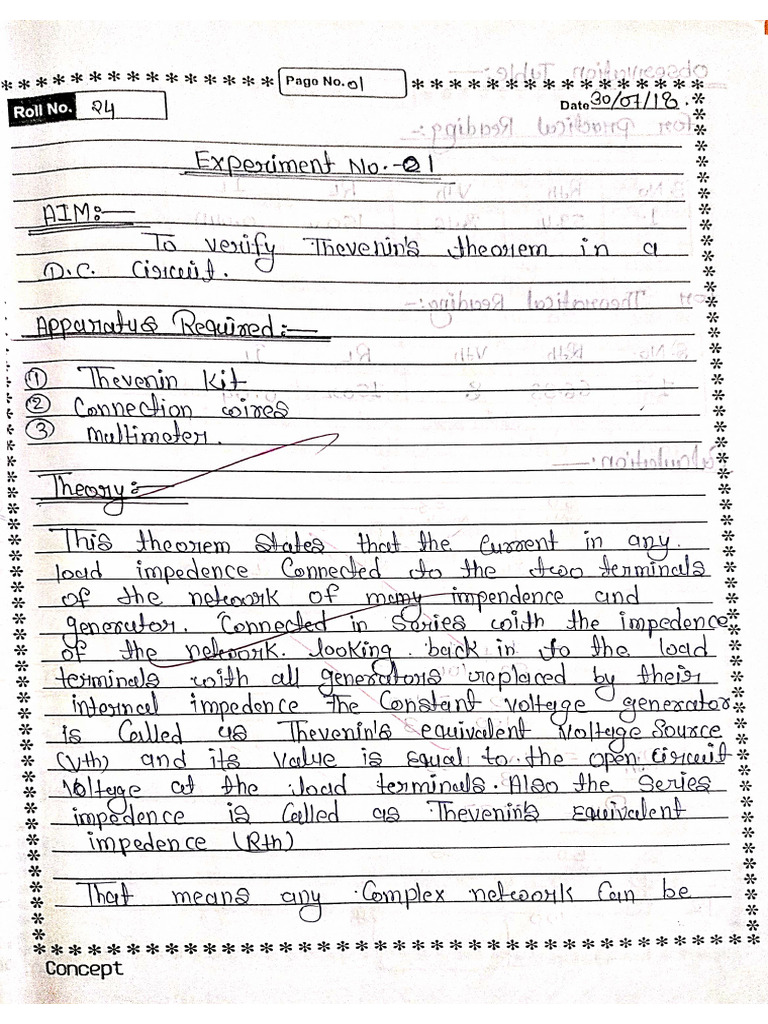 Page No. 01
Roll No. 24
Date 30/07/18.
Experiment No.-01
AIM:-
To verify Thevenin's theorem in a
D.C. Circuit.
Apparatus Required:-
① Thevenin Kit
② Connection wires
③ Multimeter.
Theory:-
This theorem States that the Current in any.
load impedence Connected to the two terminals
of the network of many impendence and
generator. Connected in Series with the impedence
of the network. looking back in to the load
terminals with all generators replaced by their
internal impedence The Constant Voltage generator
is Called as Thevenin's equivalent Voltage Source
(Vth) and its Value is Equal to the open Circuit
Voltage at the load terminals. Also the Series
impedence is Called as Thevenin's Equivalent
impedence (Rth)
That means any Complex network Can be
Concept